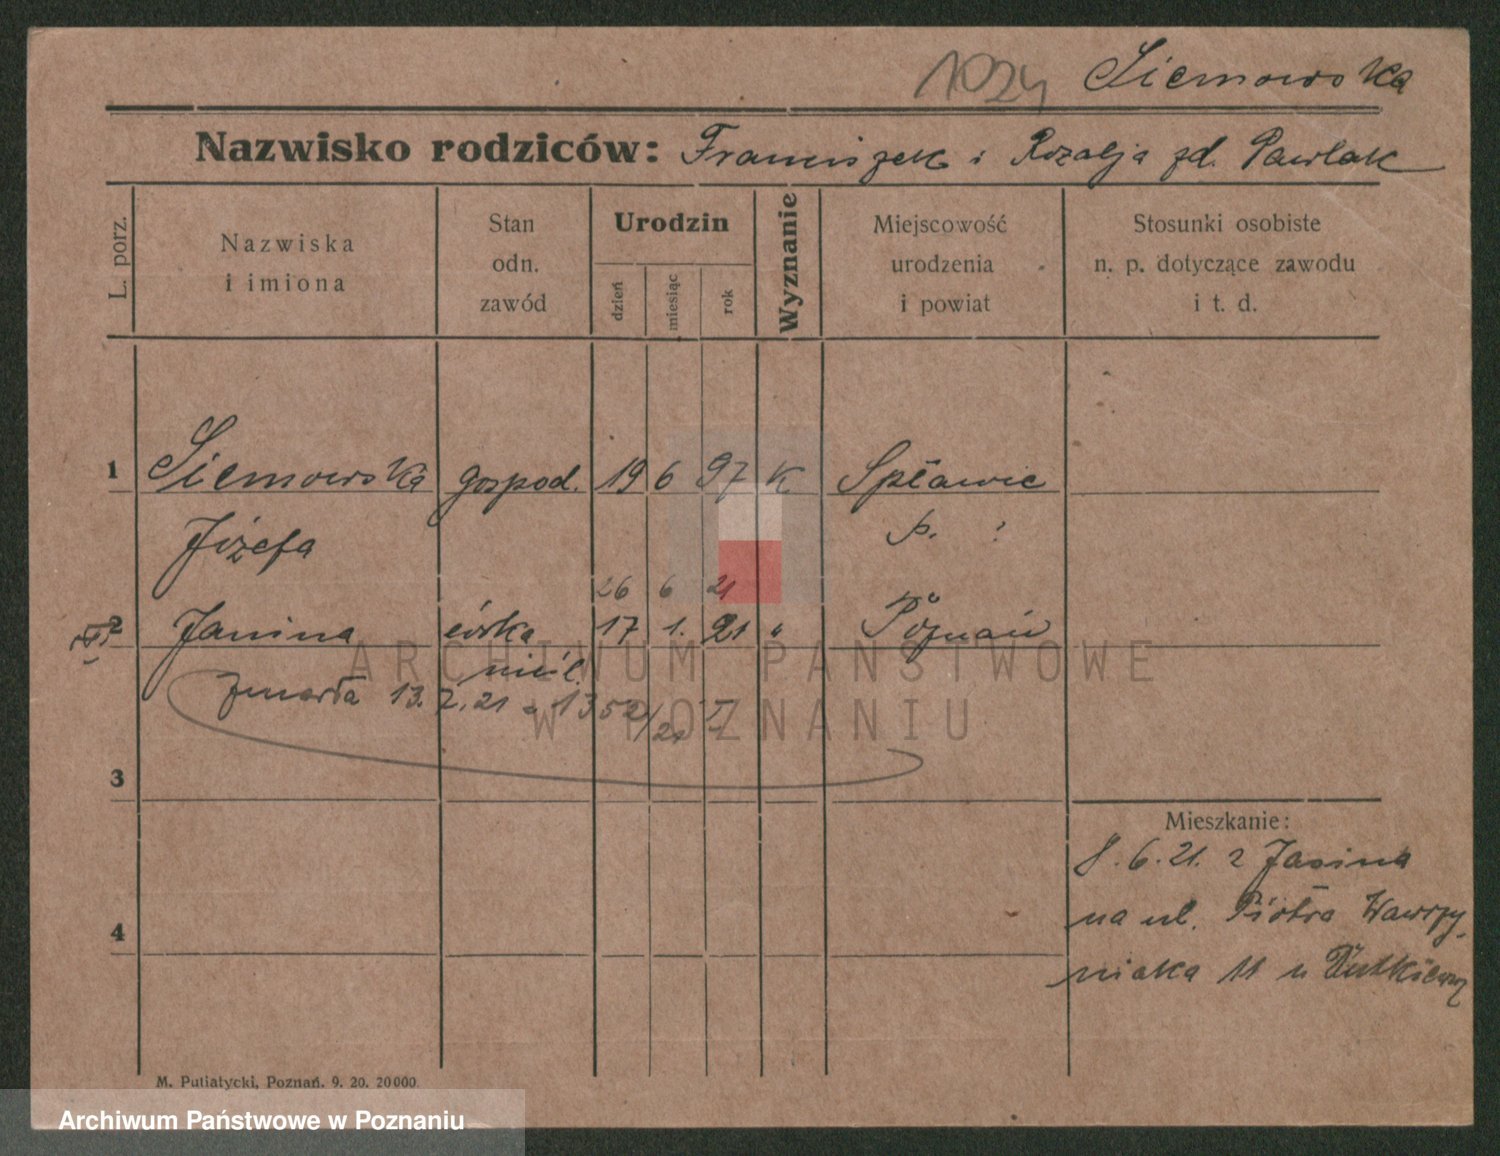 1024 Siemowska
Nazwisko rodziców: Franciszek i Rozalja zd. Pawlak
L. porz.
Nazwiska
i imiona
Stan
odn.
zawód
Urodzin
dzień
miesiąc
rok
Wyznanie
Miejscowość
urodzenia
i powiat
Stosunki osobiste
n. p. dotyczące zawodu
i t. d.
1 Siemowska gospod. 19 6 97 K Spławie
Józefa p. ?
26 6 21
2 Janina córka 17 1. 21 " Poznań
nieśl.
zmarła 13. 7. 21 = 1352/21
3
4
Mieszkanie:
8. 6. 21. 2 Janina
na ul. Piotra Wawrzy-
niaka 11 u
M. Putiatycki, Poznań. 9. 20. 20000.
ARCHIWUM PAŃSTWOWE
W POZNANIU
Archiwum Państwowe w Poznaniu